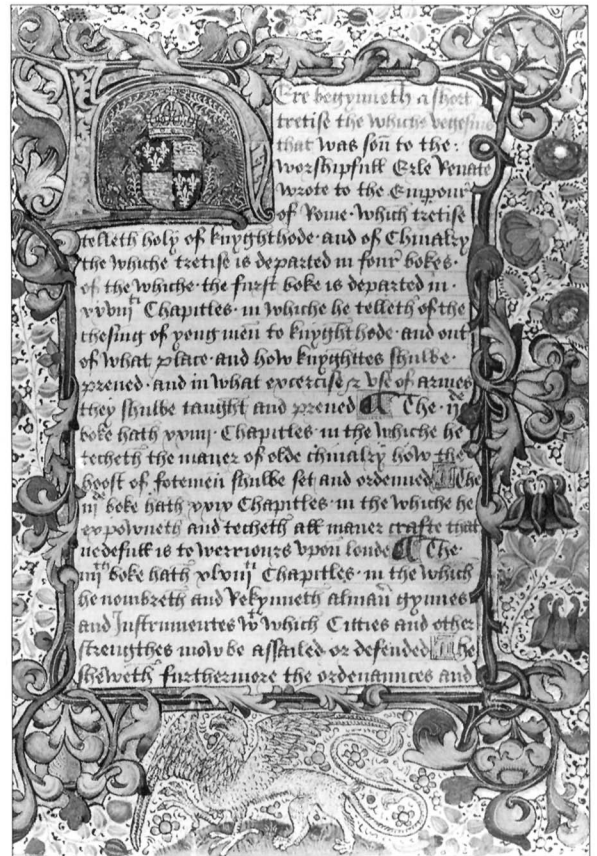 Ere begynneth a short
tretise the whiche vegesius
that was son to the :
worshipfull Erle Renate
wrote to the Empour
of Rome · which tretise
telleth holy of knyghthode · and of Chiualry
the whiche tretise is departed in four bokes ·
of the whiche · the furst boke is departed in ·
xxviij ti Chapitles · in whiche he telleth of the
chesing of yong men to knyghthode · and out
of what place · and how knyghttes shulbe ·
preued · and in what excercise & vse of armes
they shulbe taught and preued The · ij de
boke hath xxiiij · Chapitles · in the whiche he
techeth the maner of olde chiualry how the
hoost of fotemen shulbe set and ordeined The
iij de boke hath xxiv Chapitles · in the whiche he
expowneth and techeth all maner crafte that
nedefull is to werriours vpon londe The ·
iiij th boke hath xlviij ti Chapitles · in the which
he nombreth and Rekynneth alman gynnes
and Instrumentes w which Citties and other
strengthes mow be assailed or defended he
sheweth furthermore the ordenaunces and